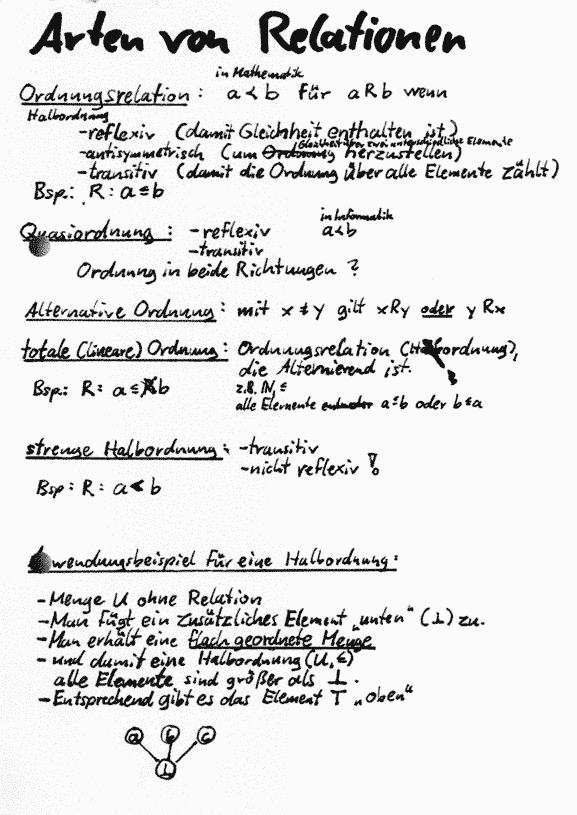 Arten von Relationen
in Mathematik
Ordnungsrelation: a < b für a R b wenn
Halbordnung
-reflexiv (damit Gleichheit enthalten ist)
Gleichheit über zwei unterschiedliche Elemente
-antisymmetrisch (um Ordnung herzustellen)
-transitiv (damit die Ordnung über alle Elemente zählt)
Bsp.: R: a ≤ b
in Informatik
Quasiordnung: -reflexiv a < b
-transitiv
Ordnung in beide Richtungen?
Alternative Ordnung: mit x ≠ y gilt xRy oder yRx
totale (lineare) Ordnung: Ordnungsrelation (Halbordnung),
die Alternierend ist.
Bsp.: R: a ≤ b
z.B. ℕ, ≤
alle Elemente entweder a ≤ b oder b ≤ a
strenge Halbordnung: -transitiv
-nicht reflexiv!
Bsp: R: a < b
wendungsbeispiel für eine Halbordnung:
-Menge U ohne Relation
-Man fügt ein zusätzliches Element „unten" (⊥) zu.
-Man erhält eine flach geordnete Menge
-und damit eine Halbordnung (U, ≤)
alle Elemente sind größer als ⊥.
-Entsprechend gibt es das Element ⊤ „oben"
a b c
⊥